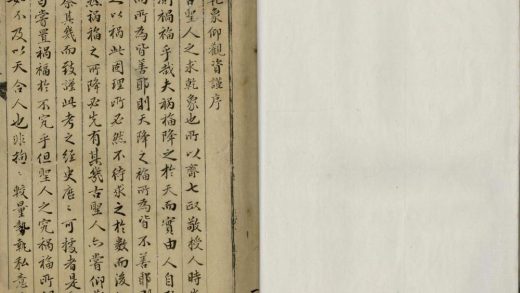 乾象仰觀資謹序
古聖人之求乾象也所以齊七政敬授人時
禍福乎哉夫禍福降之於天而實由人自
而所為皆善耶則天降之福所為皆不善耶則
之以禍此固理所必然不待求之於數而後
禍福之所降必先有其幾古聖人亦嘗仰
察其幾而致謹此考之經史歷〻可據者是
嘗置禍福於不究乎但聖人之究禍福所
如不及以天合人也非拘〻較量私意